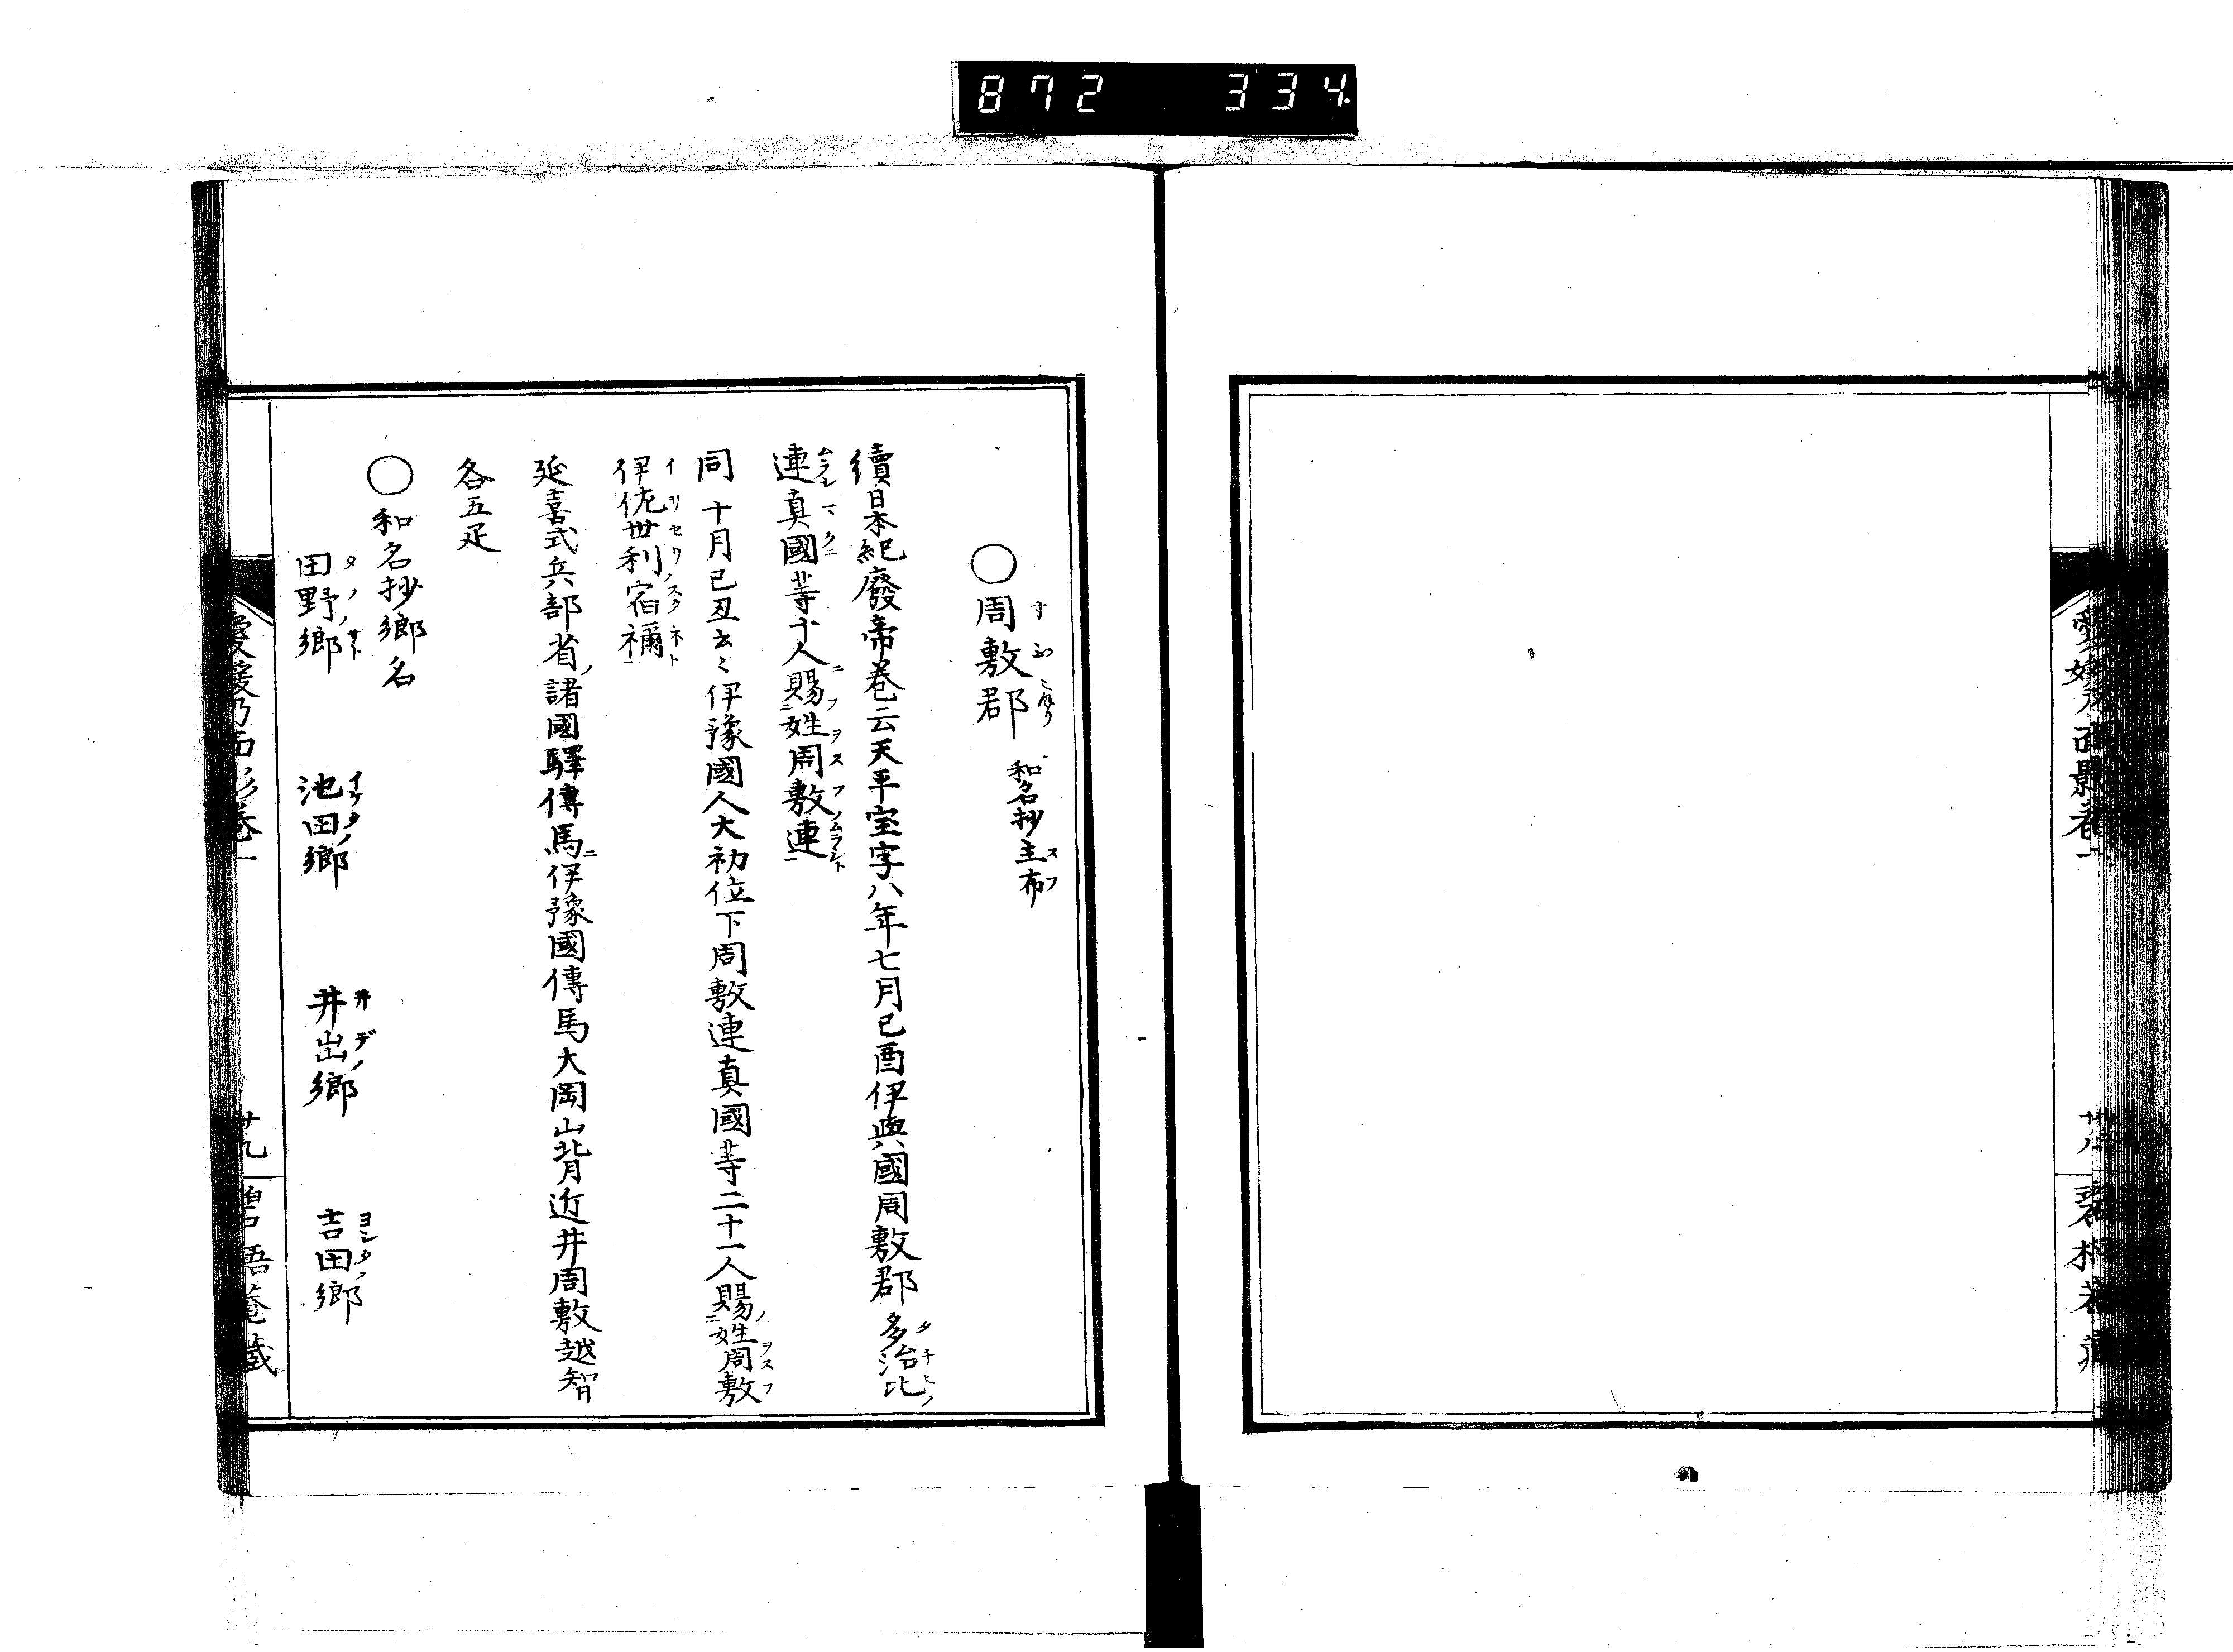 872 334
○周敷郡 和名抄主布
續日本紀廢帝卷云天平宝字八年七月己酉伊與國周敷郡多治比
連真國等十人賜姓周敷連
同十月己丑云〻伊豫國人大初位下周敷連真國等二十一人賜姓周敷
伊佐世利宿禰
延喜式兵部省諸國驛傳馬伊豫國傳馬大岡山背近井周敷越智
各五疋
○和名抄郷名
田野郷 池田郷 井出郷 吉田郷
愛媛乃面影卷一 廿九 碧梧菴藏